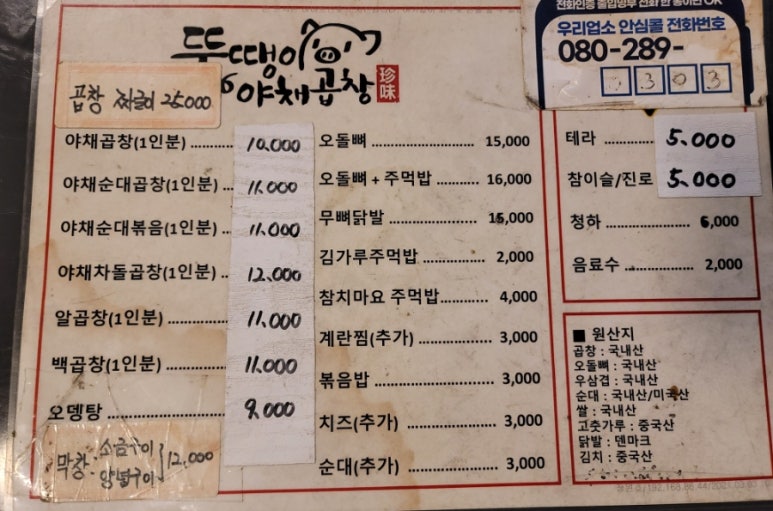 뚱땡이
야채곱창
珍味
곱창 찌글이 25,000
야채곱창(1인분) 10,000
야채순대곱창(1인분) 11,000
야채순대볶음(1인분) 11,000
야채차돌곱창(1인분) 12,000
알곱창(1인분) 11,000
백곱창(1인분) 11,000
오뎅탕 9,000
막창 소금구이 양념구이 12,000
오돌뼈 15,000
오돌뼈 + 주먹밥 16,000
무뼈닭발 15,000
김가루주먹밥 2,000
참치마요 주먹밥 4,000
계란찜(추가) 3,000
볶음밥 3,000
치즈(추가) 3,000
순대(추가) 3,000
우리업소 안심콜 전화번호
080-289-
0303
테라 5,000
참이슬/진로 5,000
청하 6,000
음료수 2,000
■ 원산지
곱창 : 국내산
오돌뼈 : 국내산
우삼겹 : 국내산
순대 : 국내산/미국산
쌀 : 국내산
고춧가루 : 중국산
닭발 : 덴마크
김치 : 중국산